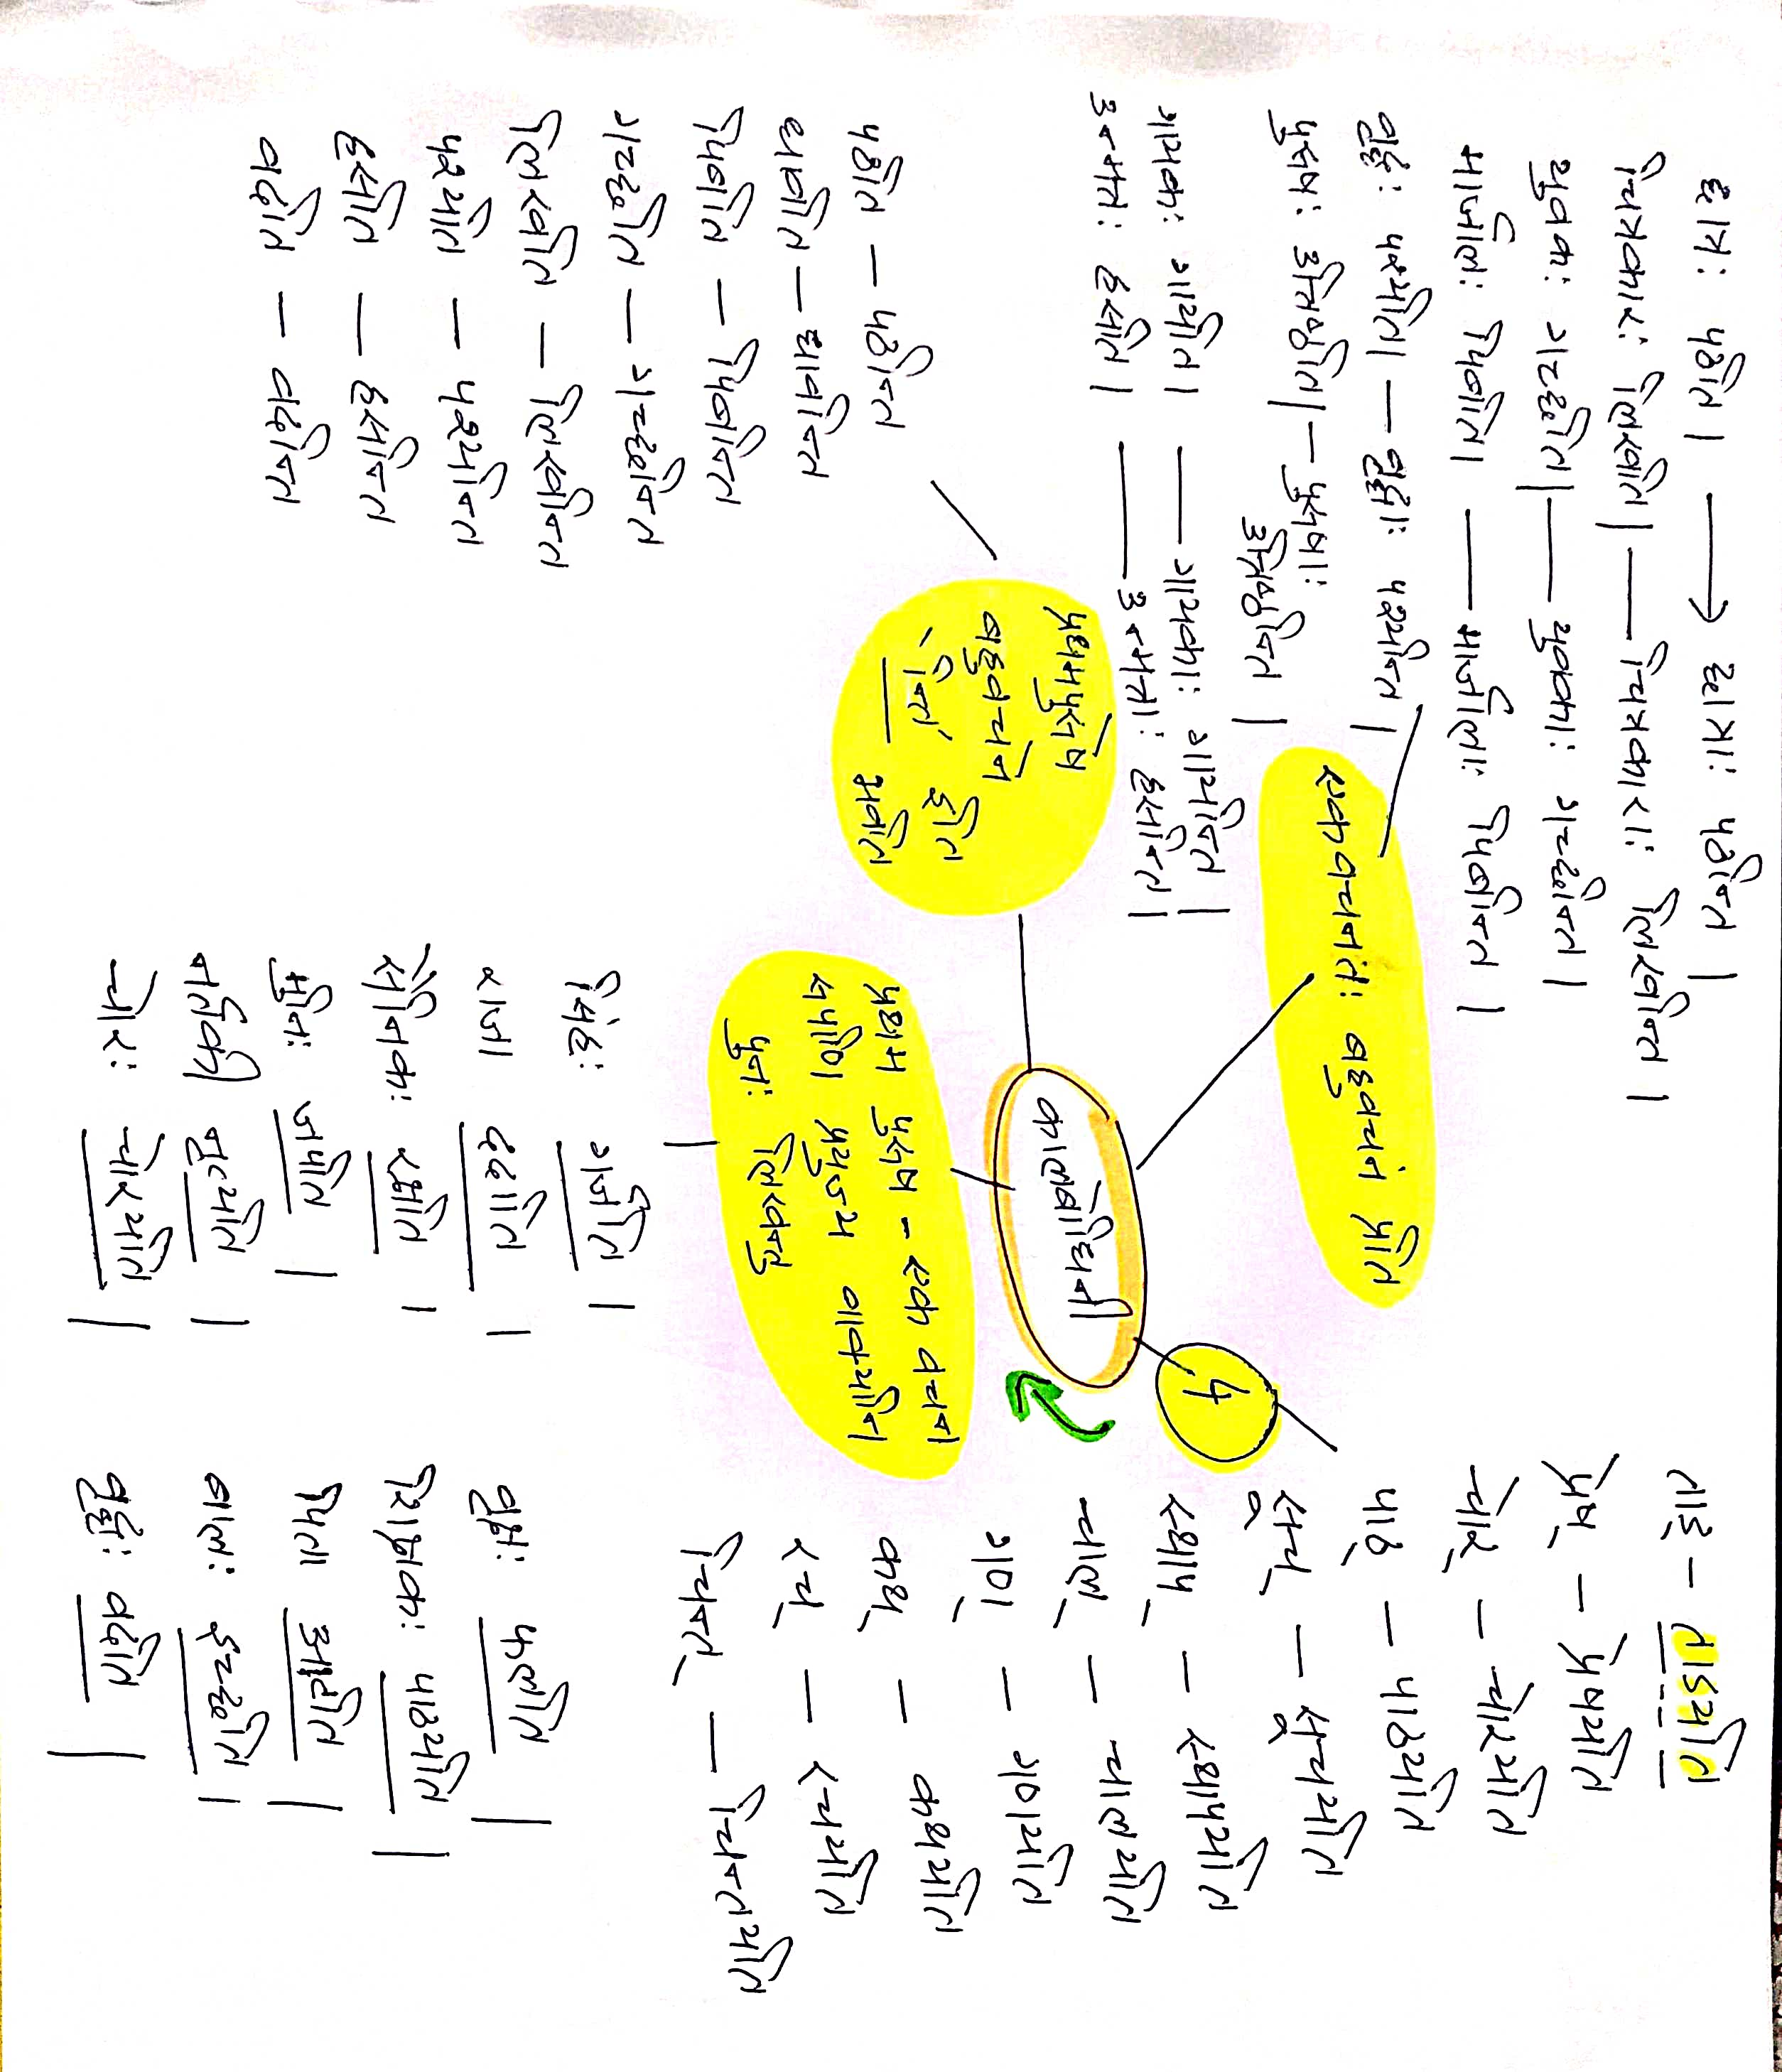 छात्रः पठति। → छात्राः पठन्ति।
चित्रकारः लिखति। — चित्रकाराः लिखन्ति।
युवकः गच्छति। — युवकाः गच्छन्ति।
मार्जालः पिबति। — मार्जालाः पिबन्ति।
वृद्धः पश्यति। — वृद्धाः पश्यन्ति।
पुरुषः उत्तिष्ठति। — पुरुषाः
उत्तिष्ठन्ति।
गायकः गायति। — गायकाः गायन्ति।
उन्मत्तः हसति। — उन्मत्ताः हसन्ति।
एकवचनतः बहुवचनं प्रति
प्रथमपुरुषे
बहुवचने
'न्ति' इति
भवति
पठति — पठन्ति
धावति — धावन्ति
पिबति — पिबन्ति
गच्छति — गच्छन्ति
लिखति — लिखन्ति
पश्यति — पश्यन्ति
हसति — हसन्ति
वदति — वदन्ति
कालबोधिनी
4
ताड् — ताडयति
प्रेष् — प्रेषयति
चोर् — चोरयति
पाठ् — पाठयति
सूच् — सूचयति
स्थाप् — स्थापयति
चाल् — चालयति
गण् — गणयति
कथ् — कथयति
रच् — रचयति
चिन्त् — चिन्तयति
प्रथम पुरुष - एक वचन
रूपाणि प्रयुज्य वाक्यानि
पुनः लिखन्तु
सिंहः गर्जति।
राजा ददाति।
सैनिकः रक्षति।
मुनिः जपति।
नर्तकी नृत्यति।
चोरः चोरयति।
वृक्षः फलति।
शिक्षकः पाठयति।
पिता आह्वयति।
बालः इच्छति।
वृद्धः वदति।